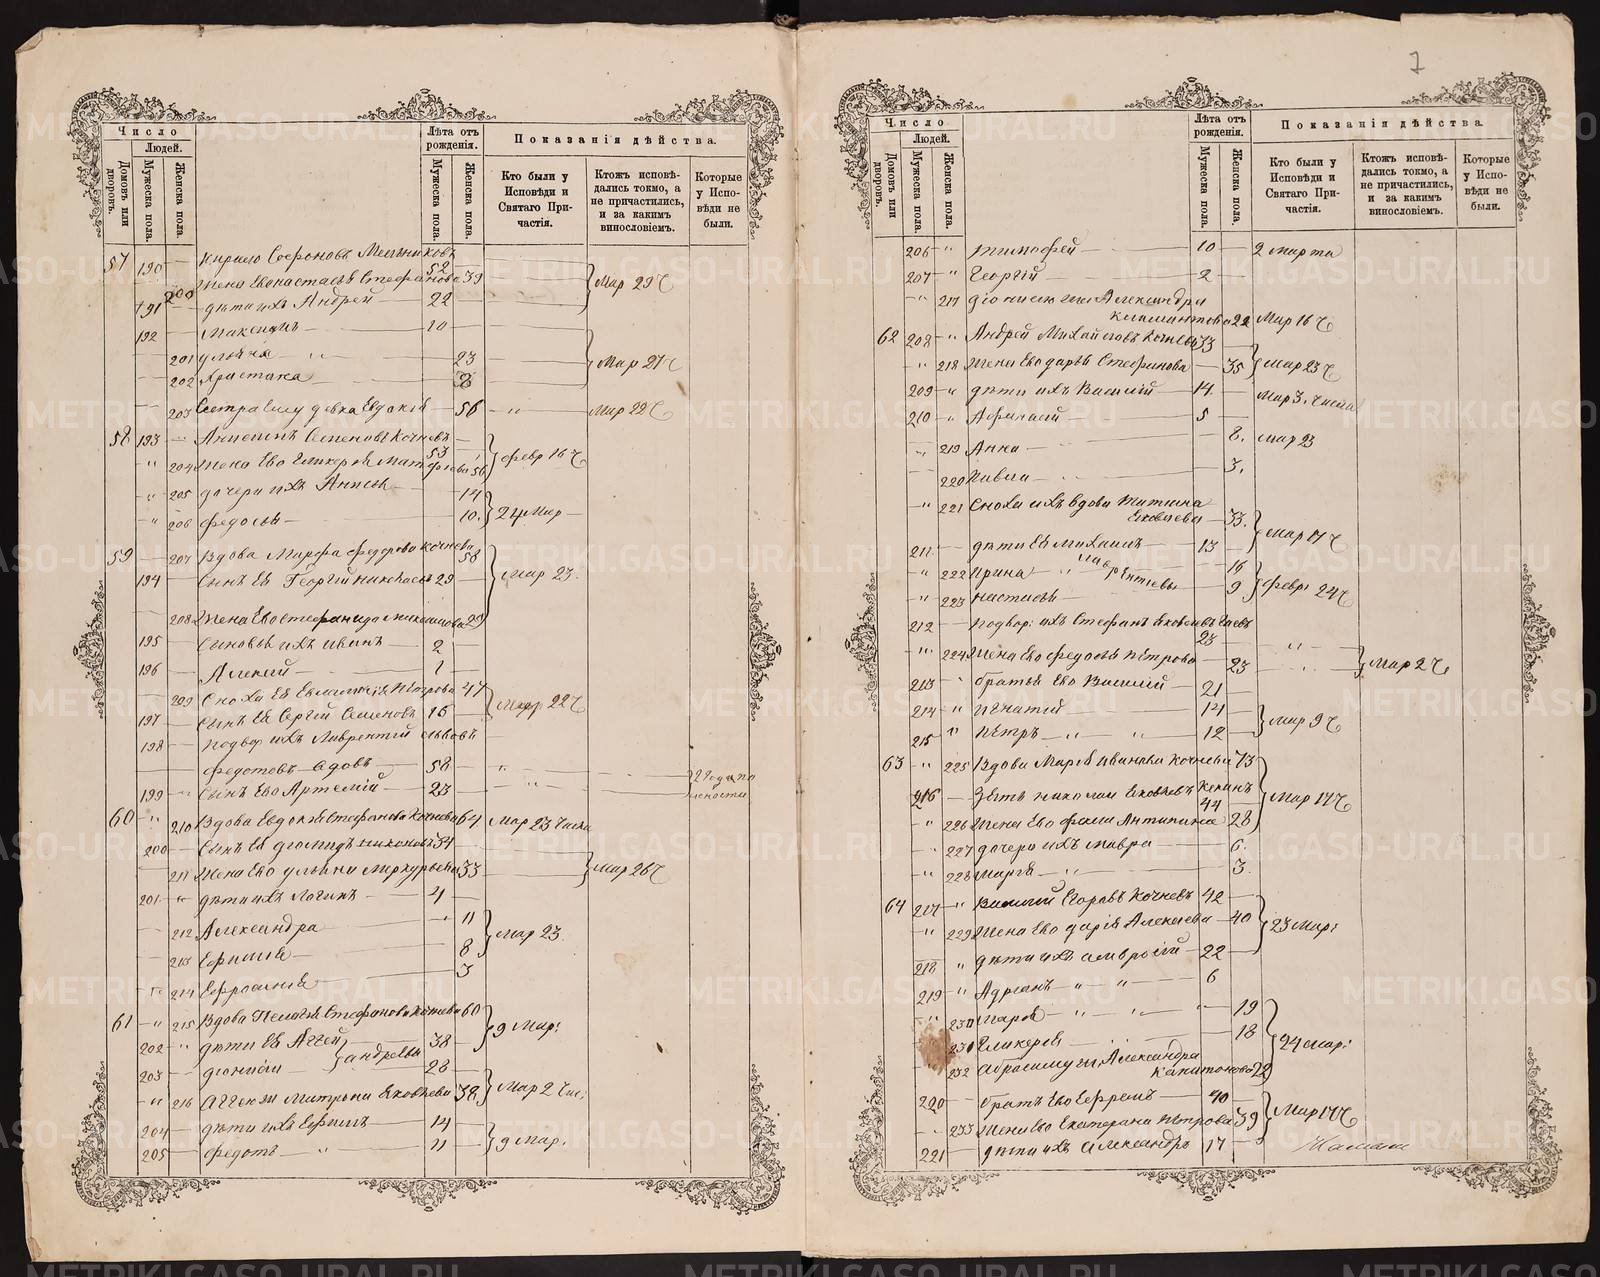 Число
Людей.
Домовъ или дворовъ.
Мужеска пола.
Женска пола.
Лѣта отъ рожденія.
Мужеска пола.
Женска пола.
Показанія дѣйства.
Кто были у Исповѣди и Святаго Причастія.
Ктожъ исповѣдались токмо, а не причастились, и за какимъ винословіемъ.
Которые у Исповѣди не были.
57 190 Кирило Софоновъ Мельниковъ 52
200 Жена Его Настасья Стефанова 39 Мар 29 Ч
191 дѣти ихъ Андрей 22
192 Максимъ 10
201 ульяна 23 Мар 27 Ч
202
203 Сестра Ему девка Евдокія 56 Мар 22 Ч
58 193 Семеновъ Кочневъ 53
204 Жена Его Гликерія 56 февр 16 Ч
205 дочери ихъ Анисья 14
206 федосья 10. 24 Мар
59 207 Вдова Марфа федорова Кочнева 58
194 Сынъ Ея Георгій 29 Мар 23.
208 Жена Его Стефанида 29
195 Сыновья ихъ Иванъ 2
196 Алексий 1
209 Сноха Ея Петрова 47
197 Сынъ Ея Сергій Семеновъ 16 Мар 22 Ч
198 Подвор ихъ Лаврентий Львовъ
федотовъ вдовъ 58
199 Сынъ Его Артемій 23
60 210 Вдова Евдокія Стефанова Кочнева 64. Мар 23 Числа
200 Сынъ Ея Диомидъ 34
211 Жена Его ульяна Меркурьева 33 Мар 26 Ч
201 дѣти ихъ Логинъ 4
212 Александра 11
213 8 Мар 23
214 Ефросинья 3
61 215 Вдова Пелагія Стефанова Кочнева 60
202 дѣти Ея Аггей 38 9 Мар:
203 дионисий андреевы 28
216 Аггею жена Матрона Яковлева 38. Мар 2 Чис:
204 дѣти ихъ Ефимъ 14
205 федотъ 11 9 Мар.
7
Число
Людей.
Домовъ или дворовъ.
Мужеска пола.
Женска пола.
Лѣта отъ рожденія.
Мужеска пола.
Женска пола.
Показанія дѣйства.
Кто были у Исповѣди и Святаго Причастія.
Ктожъ исповѣдались токмо, а не причастились, и за какимъ винословіемъ.
Которые у Исповѣди не были.
206 тимофей 10 9 марта
207 Георгій 2
217 дионисию жена Александра
Климантова 22 Мар 16 Ч
62 208 Андрей Михайловъ Кочневъ 33
218 Жена Его дарья Стефанова 35 Мар 23 Ч
209 дѣти ихъ Василій 14. Мар 3. Числа
210 Афанасій 5
219 Анна 8. Мар 23
220 3.
221 Сноха ихъ вдова татіяна
Яковлева 33.
211 дѣти Ея Михаилъ 13 Мар 17 Ч
222 Ирина 16
223 настасья 9 февр: 24 Ч
212 Подвор: ихъ Стефанъ Яковлевъ 23
224 Жена Его федосья Петрова 23 Мар 2 Ч
213 братья Его Василій 21
214 Игнатій 14
215 Петръ 12 Мар 9 Ч
63 225 Вдова Марія Иванова Кочнева 73
216 Зять николай Яковлевъ 44 Мар 17 Ч
226 Жена Его Антипина 28
227 дочери ихъ мавра 6.
228 марія 3.
64 217 Василий Егоровъ Кочневъ 42
229 Жена Его дарія Алексиева 40 23 Мар:
218 дѣти ихъ амвросій 22
219 Адрианъ 6
230 19
231 Гликерія 18 24 мар:
232 Абросиму жена Александра
Капитонова 22
220 братъ Его Ефремъ 40
233 Жена Его Екатерина Петрова 39 Мар 17 Ч
221 дѣти ихъ александръ 17